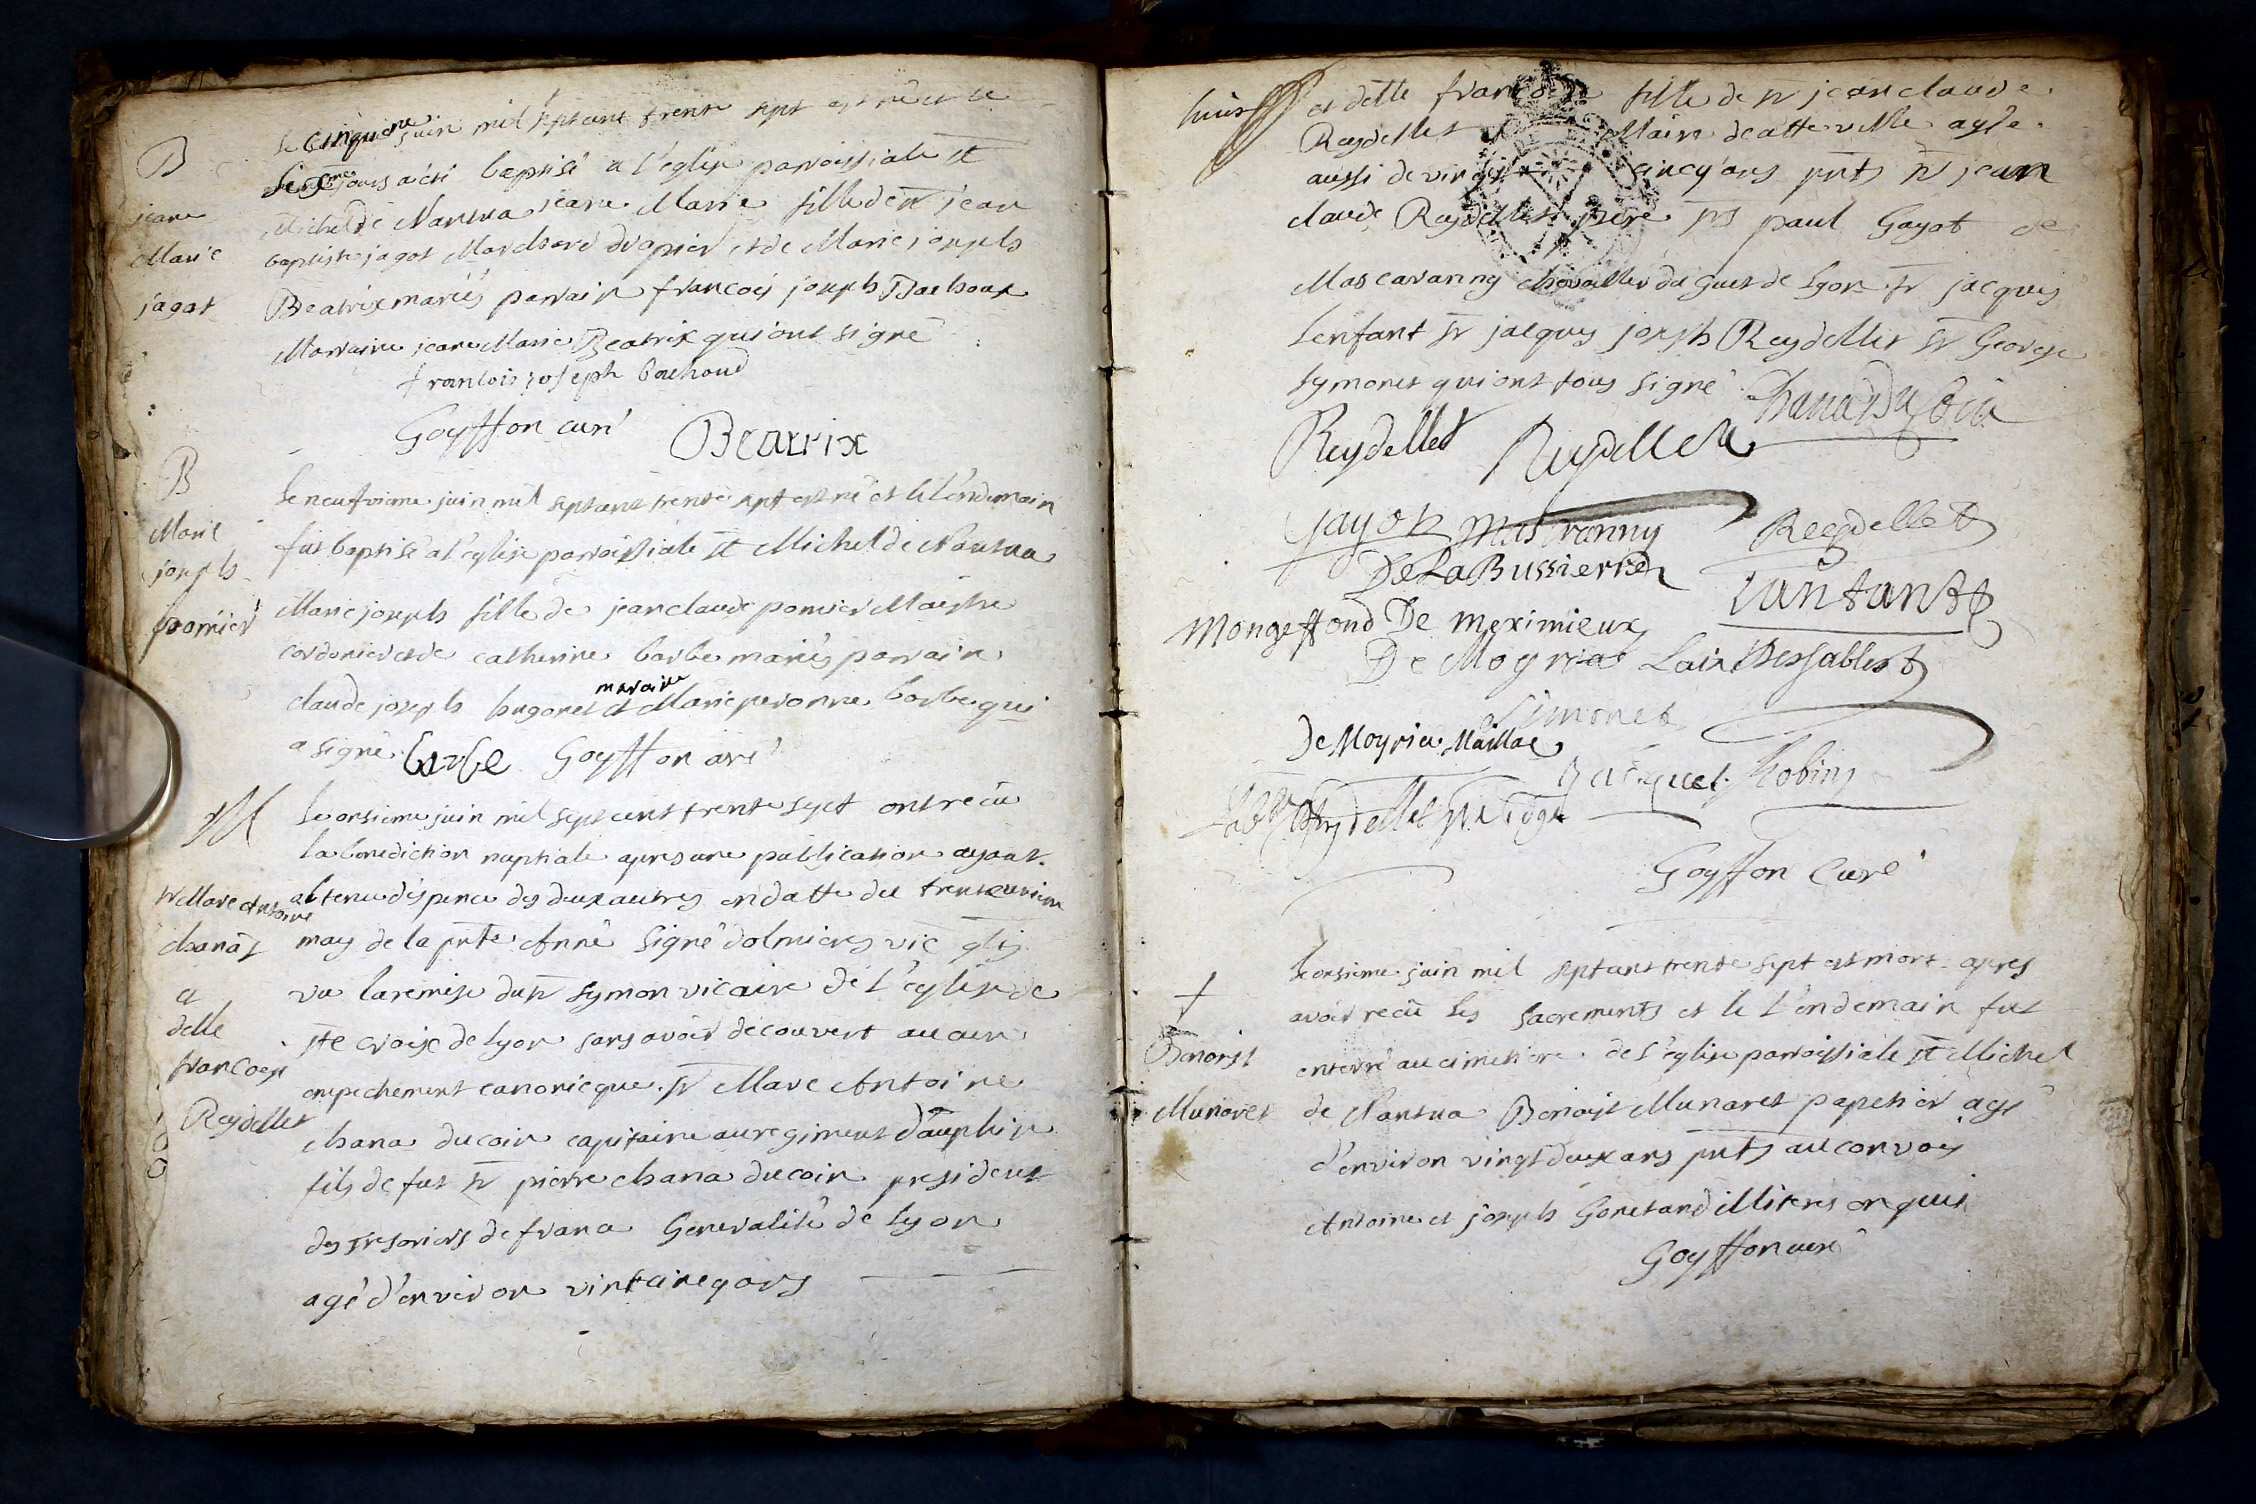 B
jeane
Marie
jagot
le cinquiem juin mil septcent trente sept est né et le
jours a été baptisé a l'eglise parroissiale St
Michel de Nantua jeane Marie fille de sr jean
baptiste jagot Marchand drapier et de Marie joseph
Beatrix mariés parrain francois joseph Bachoux
Marraine jeane Marie Beatrix qui ont signé
francois joseph bachoud
Goyffon curé
Beatrix
B
Marie
joseph
pomier
le neufvieme juin mil septcent trente sept est né et le l'endemain
fut baptisé a l'eglise parroissiale St Michel de Nantua
Marie joseph fille de jean claude pomier Maistre
cordonier et de catherine barbe mariés parrain
claude joseph hugonet et maraine Marie peronne barbe qui
a signé barbe Goyffon curé
M
sr Marc Antoine
chanas
et
delle
francoise
Reydellet
le onsieme juin mil sept cent trente sept ont recu
la benediction nuptiale apres une publication ayant
obtenu dispence des deux autres en datte du trenteunieme
may de la pnte Anné signé dolmieres vic gl
vu la remise du sr symon vicaire de l'eglise de
ste croix de lyon sans avoir decouvert aucun
empechement canonicque. sr Marc Antoine
chana ducoin capitaine au regiment dauphin
fils de fut sr pierre chana ducoin president
des tresoriers de france Generalité de lyon
agé d'environ vint cincq ans
huit
et delle francoise fille de sr jean claude
Reydellet Maire de cette ville agée
aussi de vingt cincq ans pnts sr jean
claude Reydellet pere paul Gayot de
Mascaranny chevallier du guet de lyon sr jacques
lenfant sr jacques joseph Reydellet sr George
symonet qui ont tous signé
chana Du Coin
Reydellet Reydellet
Gayot Mascranny Reydellet
De La Bussierre
Lanfant
Mongeffond De meximieux
De Moyria
Simonet
De Moyria Maillac
jacquet Robin
Reydellet
Goyffon Curé
+
Benoist
Munaret
le onsieme juin mil septcent trente sept est mort apres
avoir recu les sacrements et le l'endemain fut
enterré au cimetiere de l'eglise parroissiale St Michel
de Nantua Benoist Munaret papetier agé
d'environ vingt deux ans pnts au convoy
Antoine et joseph Gonetand illiteres enquis
Goyffon curé